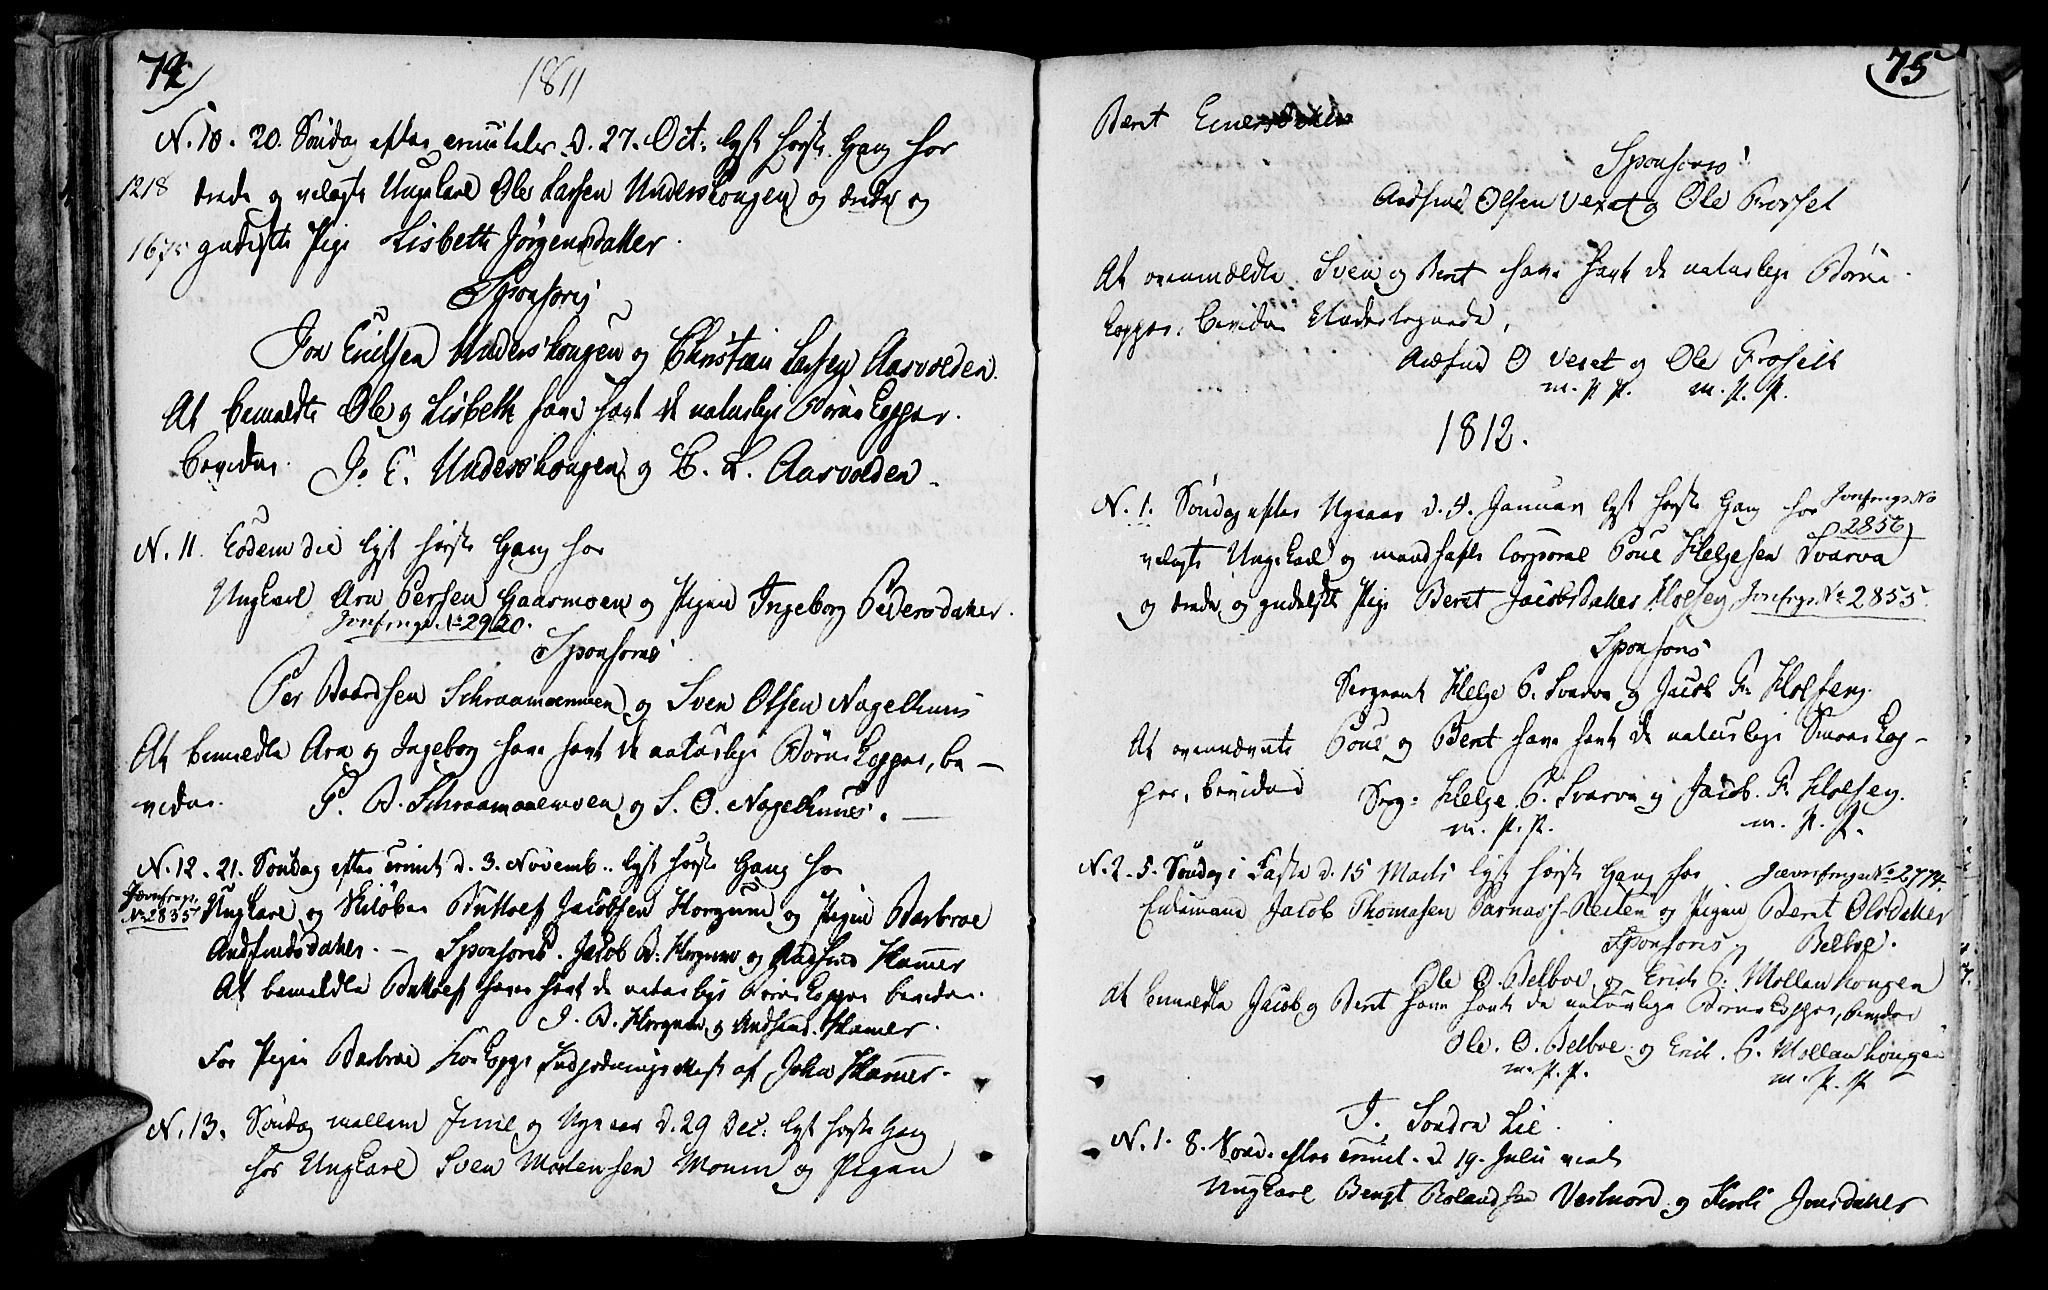 74
1811
N. 10. 20. Søndag efter trinitatis d. 27. Oct. lyst første Gang for
1218 ærede og velagte Ungkarl Ole Larsen Underskougen og ærede og
1675 gudfrygtige Pige Lisbeth Jørgensdatter.
Sponsores
Jon Erichsen Underskougen og Christian Larsen Aasvolden.
At bemeldte Ole og Lisbeth have havt de naturlige Børne Kopper.
bevidne. J. E. Underskougen og C. L. Aasvolden.
N. 11. Eodem die lyst første Gang for
Ungkarl Arn Persen Gaasmoen og Pigen Ingeborg Pedersdatter.
Jevnfrngs. No 2920.
Sponsores
Per Baardsen Schraamoemoen og Sven Olsen Nagelhuus
At bemeldte Arn og Ingeborg have havt de naturlige Børne Kopper, be-
vidne. P. B. Schraamoemoen og S. O. Nagelhuus.
N. 12. 21. Søndag efter trinit. d. 3. Novemb. lyst første Gang for
Jevnfrngs. No 2835 Ungkarl og Skiløber Buttolf Jacobsen Horgum og Pigen Barbroe
Andfindsdatter. - Sponsores. Jacob B. Horgum og Andfind Hamer
At bemeldte Buttolf haver havt de naturlige Børne Kopper bevidne.
J. B. Horgum og Andfind Hamer.
For Pigen Barbroe Koe Koppe Indpodnings Attest af John Hamer.
N. 13. Søndag mellem Juul og Nyaar d. 29 Dec. lyst første Gang
for Ungkarl Sven Mortensen Mounn og Pigen
75
Beret Einersdatter
Sponsores
Andfind Olsen Veret og Ole Frosset
At ovenmeldte Sven og Beret have havt de naturlige Børne
Kopper, bevidne Undertegnede,
Andfind O Veret og Ole Frosset
m. p. p. m. p. p.
1812.
N. 1. Søndag efter Nyaar d. 4. Januar lyst første Gang for Jevnfrngs No
2856
velagte Ungkarl og mandhafte Corporal Poul Helgesen Svarva
og ærede og gudelskte Pige Beret Jacobsdatter Holsen Jevnfrngs. No 2855.
Sponsores
Sergeant Helge P. Svarva og Jacob F. Holsen.
At ovennævnte Poul og Beret have havt de naturlige Smaae Kop-
per, bevidne Serg: Helge P. Svarva og Jacob F. Holsen.
m. p. p. m. p. p.
N. 2. 5. Søndag i Faste d. 15 Marts lyst første Gang for Jævnfrngs No 2774.
Enkemand Jacob Thomasen Parnass-Reiten og Pigen Beret Olsdatter
Sponsores Belboe.
Ole O. Belboe og Erich P. Mollanhougen
At bemeldte Jacob og Beret have havt de naturlige Børne Kopper, bevidne
Ole. O. Belboe og Erich. P. Mollanhougen
m. p. p. m. p. p
T. Sondre Lie.
N. 1. 8. Sønd. efter trinit. d. 19. Julii viet
Ungkarl Bengt Rolandsen Vestnord og Kirsti Jonsdatter